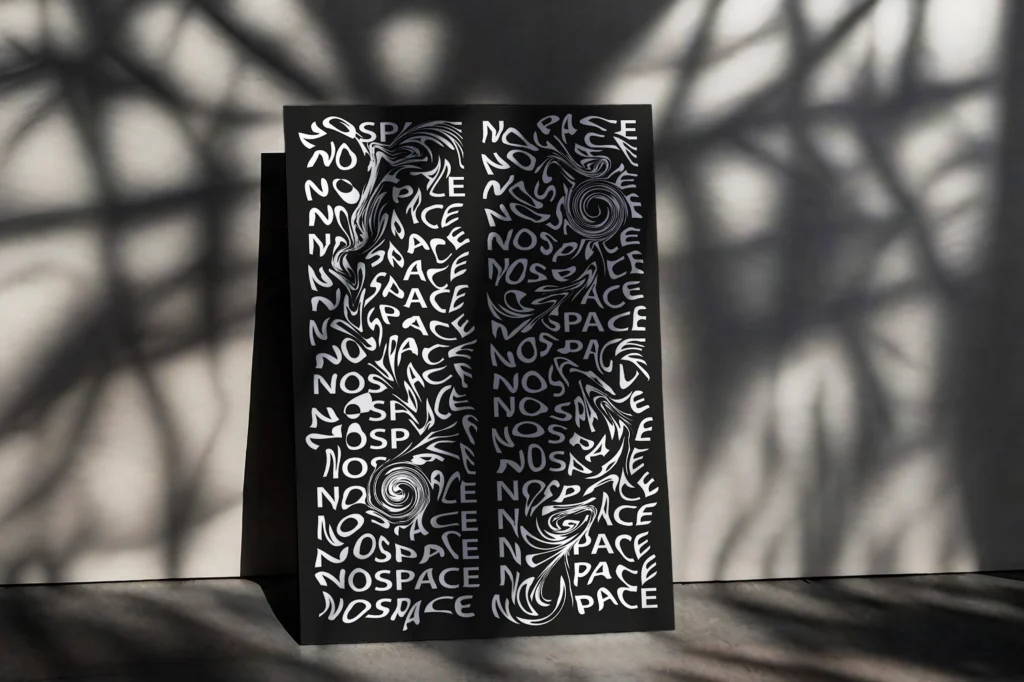 NOSPACE
NO
NO
NO PACE
NO PACE
SPACE
SPACE
NOSPACE
NOSPACE
NOSPACE
NOSP
NOSP
NOS
NO ACE
NOSPACE
NOSPACE
NOSPACE
NOSPACE
NOSPACE
NO
NOS
NOS
NOSPACE
NOSPACE
ACE
NOSPACE
NOSPACE
NOSPACE
NOSPA E
NOSPA E
NOSPA
NOSPACE
N ACE
N PACE
N PACE
N PACE